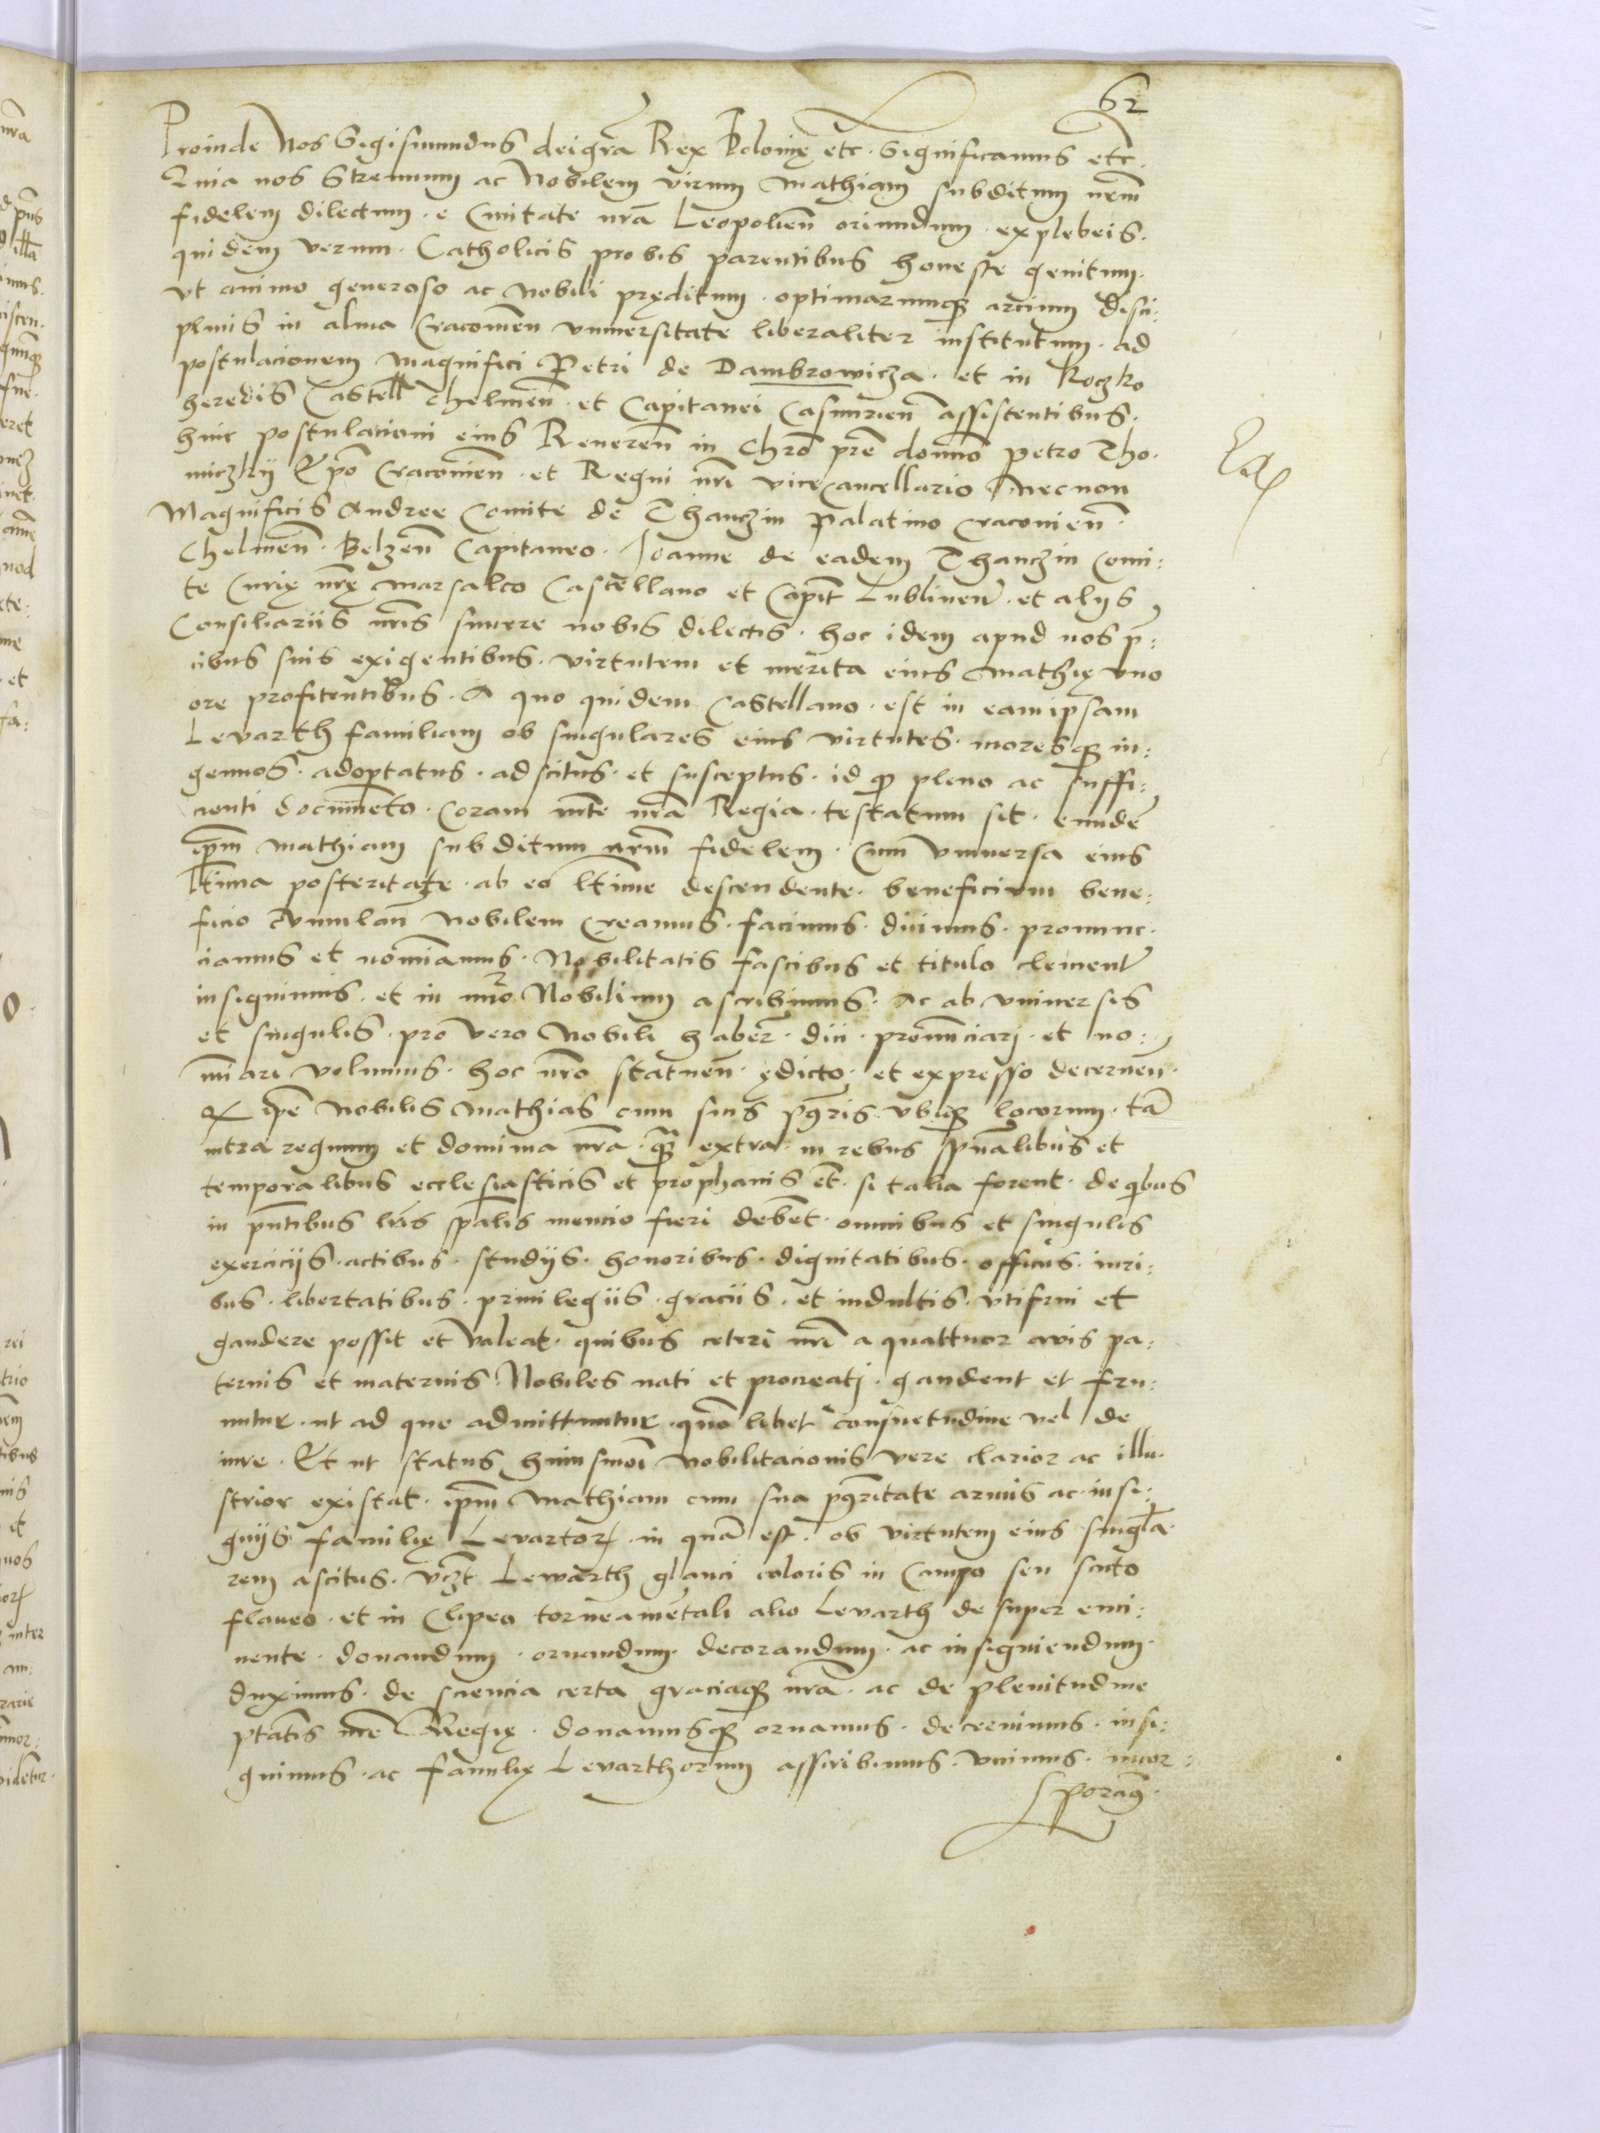 62
Proinde Nos Sigismundus dei gra Rex Polonię etc. Significamus etc.
Quia nos Strenuum ac Nobilem virum Mathiam subditum nrm
fidelem dilectum. e Civitate nra Leopolien oriundum. ex plebeis.
quidem verum. Catholicis probis parentibus honeste genitum.
Vt animo generoso ac Nobili pręditum. optimarumq artium disci:
plinis in alma Cracovien Vniversitate liberaliter institutum. ad
postulacionem Magnifici Petri de Dambrowicza. et in Koczko
heredis Castell Chelmen. et Capitanei Casimirien assistentibus.
huic postulationi eius Reveren in Chro pre domno Petro Tho.
miczky Epo Cracovien. et Regni nri vicecancellario Necnon
Magnificis Andree Comite de Thanczin Palatino Cracovien.
Chelmen. Belzen Capitaneo. Joanne de eadem Thanczin Comi:
te Curię nrę Marsalco Castellano et Capit Lublinen. et alijs
Consiliariis nris sincere nobis dilectis. hoc idem apud nos p:
cibus suis exigentibus. virtutem et merita eius Mathię vno
ore profitentibus. A quo quidem Castellano. est in eam ipsam
Levarth familiam ob singulares eius virtutes. moresq in:
genuos. adoptatus. adscitus. et susceptus. id q pleno ac suffi:
cienti documeto. Coram mte nra Regia. testatum sit. eunde
ipm Mathiam subditum nrm fidelem. Cum Vniversa eius
ltima posteritate. ab eo ltime descendente. beneficium bene:
ficio cumulan Nobilem Creamus. facimus. dicimus. pronunc.
ciamus et nominamus. Nobilitatis fascibus et titulo clementer
insignimus. et in nuro Nobilium ascribimus. Ac ab vniversis
et singulis. pro vero Nobili haberi. dici. pronunciari. et no:
minari volumus. hoc nro statuen. ędicto. et expresso decernen.
Q ipe Nobilis Mathias cum suis pteris vbiq locorum. ta
intra regnum et dominia nra. q extra. in rebus spualibus et
temporalibus ecclesiasticis et prophanis et. si talia forent. de qibus
in pntibus lris spalis mencio fieri debet. omnibus et singulis
exerciciis. actibus. studijs. honoribus. dignitatibus. officiis. iuri:
bus. libertatibus. privilegiis. graciis. et indultis. vti frui et
gaudere possit et valeat. quibus ceteri nri a quattuor avis pa:
ternis et maternis Nobiles nati et procreati. gaudent et fru:
untur. ut ad que admittuntur. quo libet consuetudine vel de
iure. Et ut status huiusmoi Nobilitacionis vere clarior ac illu.
strior existat. ipm Mathiam cum sua pteritate armis ac insi:
gnijs familię Levartor in qua est. ob virtutem eius singla.
rem ascitus. vczt Lewarth glauci coloris in Campo seu scuto
flaveo. et in Clipeo torneametali alio Levarth de super emi:
nente. donandum. ornandum. decorandum. ac insigniendum.
duximus. de sciencia certa graciaq nra. ac de plenitudine
ptatis nre Regię. donamusq ornamus. decernimus. insi:
gnimus. ac familię Levarthorum asscribimus. vnimus. incor:
poram